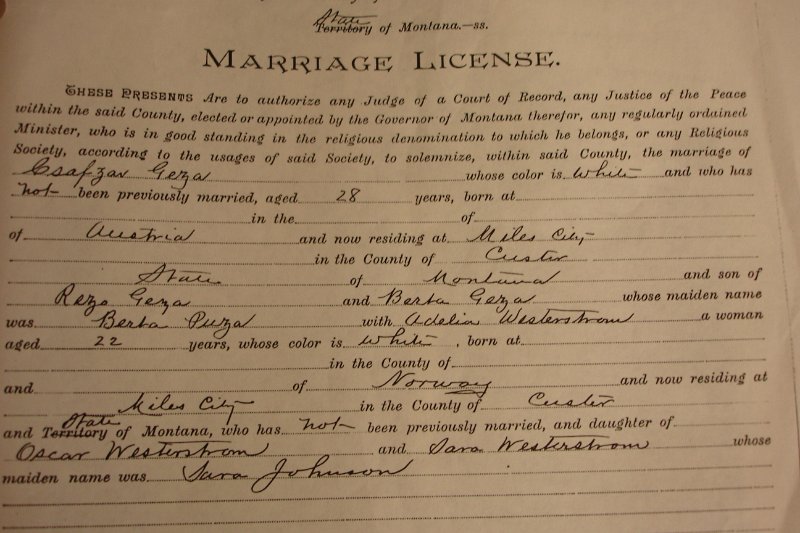 State
Territory of Montana.—ss.
MARRIAGE LICENSE.
THESE PRESENTS Are to authorize any Judge of a Court of Record, any Justice of the Peace
within the said County, elected or appointed by the Governor of Montana therefor, any regularly ordained
Minister, who is in good standing in the religious denomination to which he belongs, or any Religious
Society, according to the usages of said Society, to solemnize, within said County, the marriage of
Csafzar Geza whose color is White and who has
not been previously married, aged 28 years, born at
in the of
of Austria and now residing at Miles City
in the County of Custer
State of Montana and son of
Rezo Geza and Berta Geza whose maiden name
was Berta Puza with Adelia Westerstrom a woman
aged 22 years, whose color is White, born at
in the County of
and of Norway and now residing at
Miles City in the County of Custer
State
and Territory of Montana, who has not been previously married, and daughter of
Oscar Westerstrom and Sara Westerstrom whose
maiden name was Sara Johnson